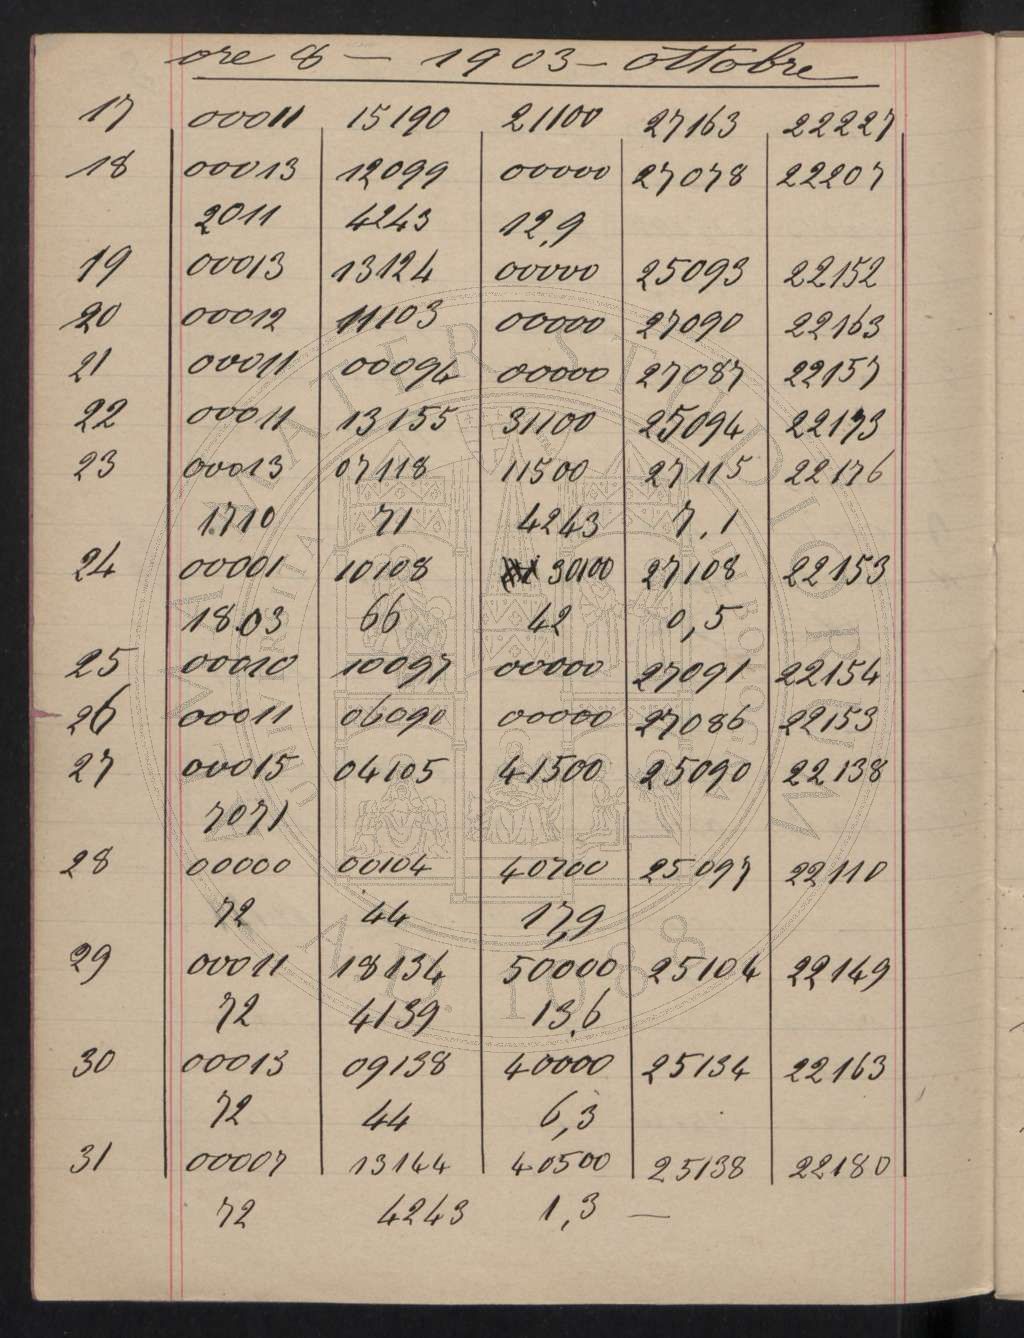 ore 8 — 1903 — ottobre
17 00011 15190 21100 27163 22227
18 00013 12099 00000 27078 22207
2011 4243 12,9
19 00013 13124 00000 25093 22152
20 00012 11103 00000 27090 22163
21 00011 00094 00000 27087 22157
22 00011 13155 31100 25094 22173
23 00013 07118 11500 27115 22176
1710 71 4243 7,1
24 00001 10108 30100 27108 22153
1803 66 42 0,5
25 00010 10097 00000 27091 22154
26 00011 06090 00000 27086 22153
27 00015 04105 41500 25090 22138
7071
28 00000 00104 40700 25097 22110
72 44 17,9
29 00011 18134 50000 25104 22149
72 4139 13,6
30 00013 09138 40000 25134 22163
72 44 6,3
31 00007 13144 40500 25138 22180
72 4243 1,3 —
ALMA MATER STUDIORUM
A.D. 1088